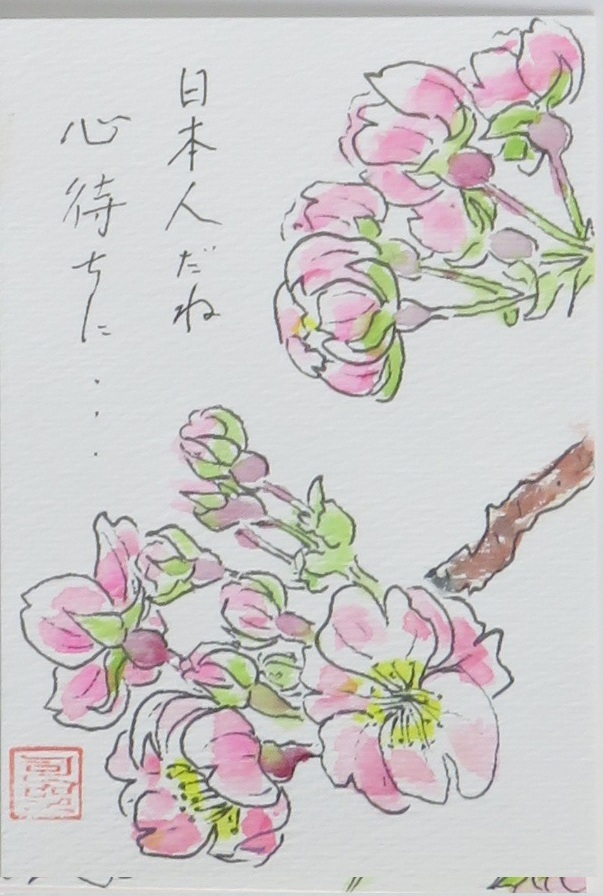 日本人だね
心待ちに...